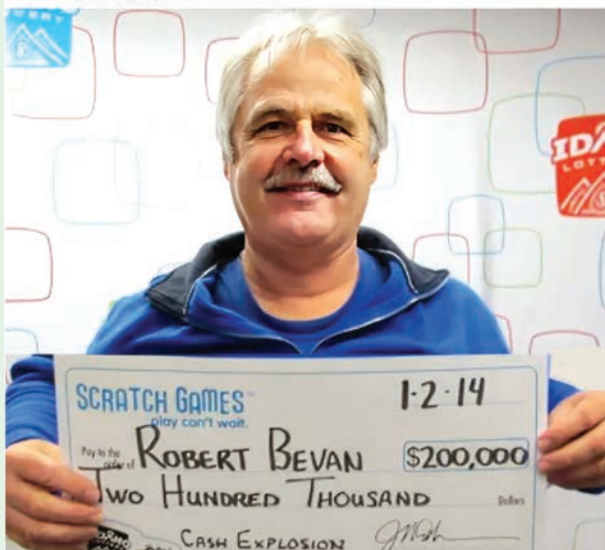 SCRATCH GAMES™
play can't wait.
1·2·14
Pay to the
order of
ROBERT BEVAN
$200,000
TWO HUNDRED THOUSAND
Dollars
CASH EXPLOSION